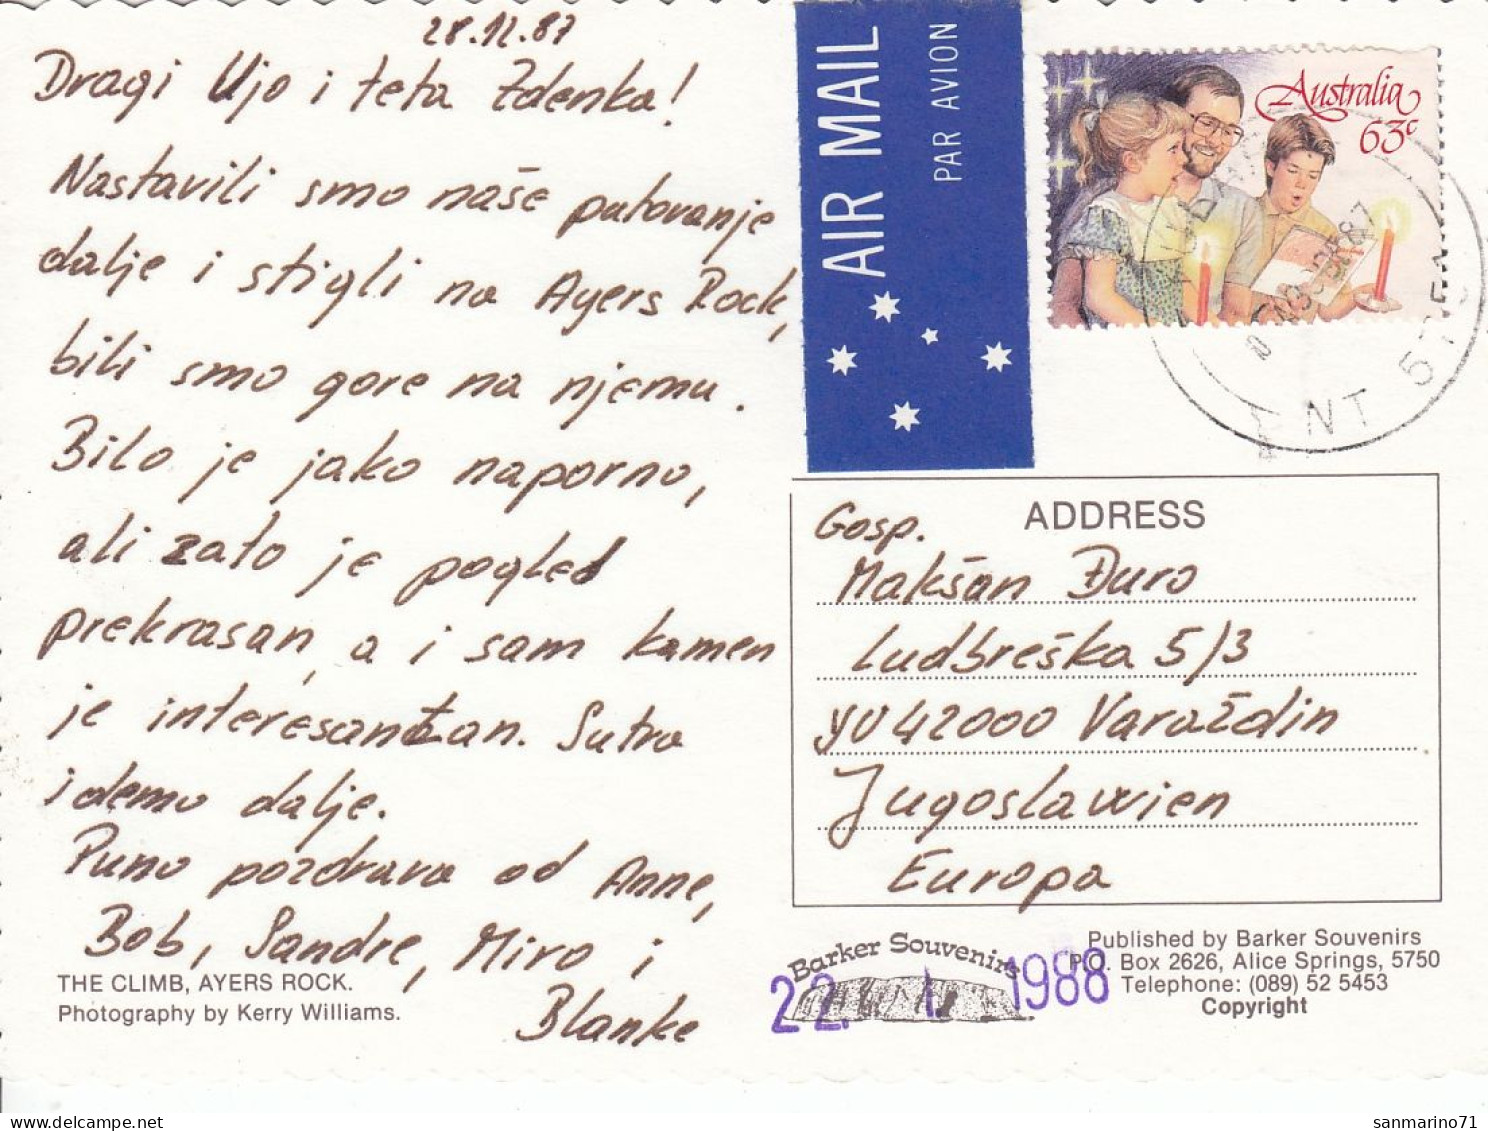 28.12.87
Dragi Ujo i teta Zdenka!
Nastavili smo naše putovanje
dalje i stigli na Ayers Rock,
bili smo gore na njemu.
Bilo je jako naporno,
ali zato je pogled
prekrasan, a i sam kamen
je interesantan. Sutra
idemo dalje.
Puno pozdrava od Anne,
Bob, Sandre, Miro i
Blanke
THE CLIMB, AYERS ROCK.
Photography by Kerry Williams.
AIR MAIL
PAR AVION
Australia
63c
NT 575
ADDRESS
Gosp.
Makšan Đuro
Ludbreška 5/3
YU 42000 Varaždin
Jugoslawien
Europa
Barker Souvenirs
22. I. 1988
Published by Barker Souvenirs
P.O. Box 2626, Alice Springs, 5750
Telephone: (089) 52 5453
Copyright
sanmarino71